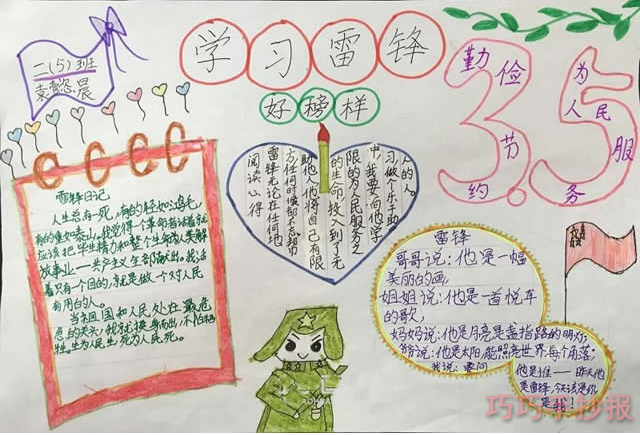 二(5)班
学习雷锋
好榜样
勤俭节约
3.5
为人民服务
雷锋日记
人生总有一死,有的轻如鸿毛,
有的重如泰山,我觉得一个革命者活着就
应该把毕生精力和整个生命为人类解
放事业——共产主义全部献出。我活
着只有一个目的,就是做一个对人民
有用的人。
当祖国和人民处在最危
急的关头,我就挺身而出,不怕牺
牲。生为人民生,死为人民死。
阅读心得
雷锋无论在任何地
方任何时候都不忘帮
助他人,他将自己有限
的生命投入到了无
限的为人民服务之
中,我要向他学
习,做个乐于助
人的人。
雷锋
哥哥说:他是一幅
美丽的画,
姐姐说:他是一首悦耳
的歌,
妈妈说:他是月亮是盏指路的明灯,
爷爷说:他是太阳,能照亮世界每个角落;
我说:要问
他是谁——昨天他
是雷锋,今天该是你
是我!
巧巧手抄报